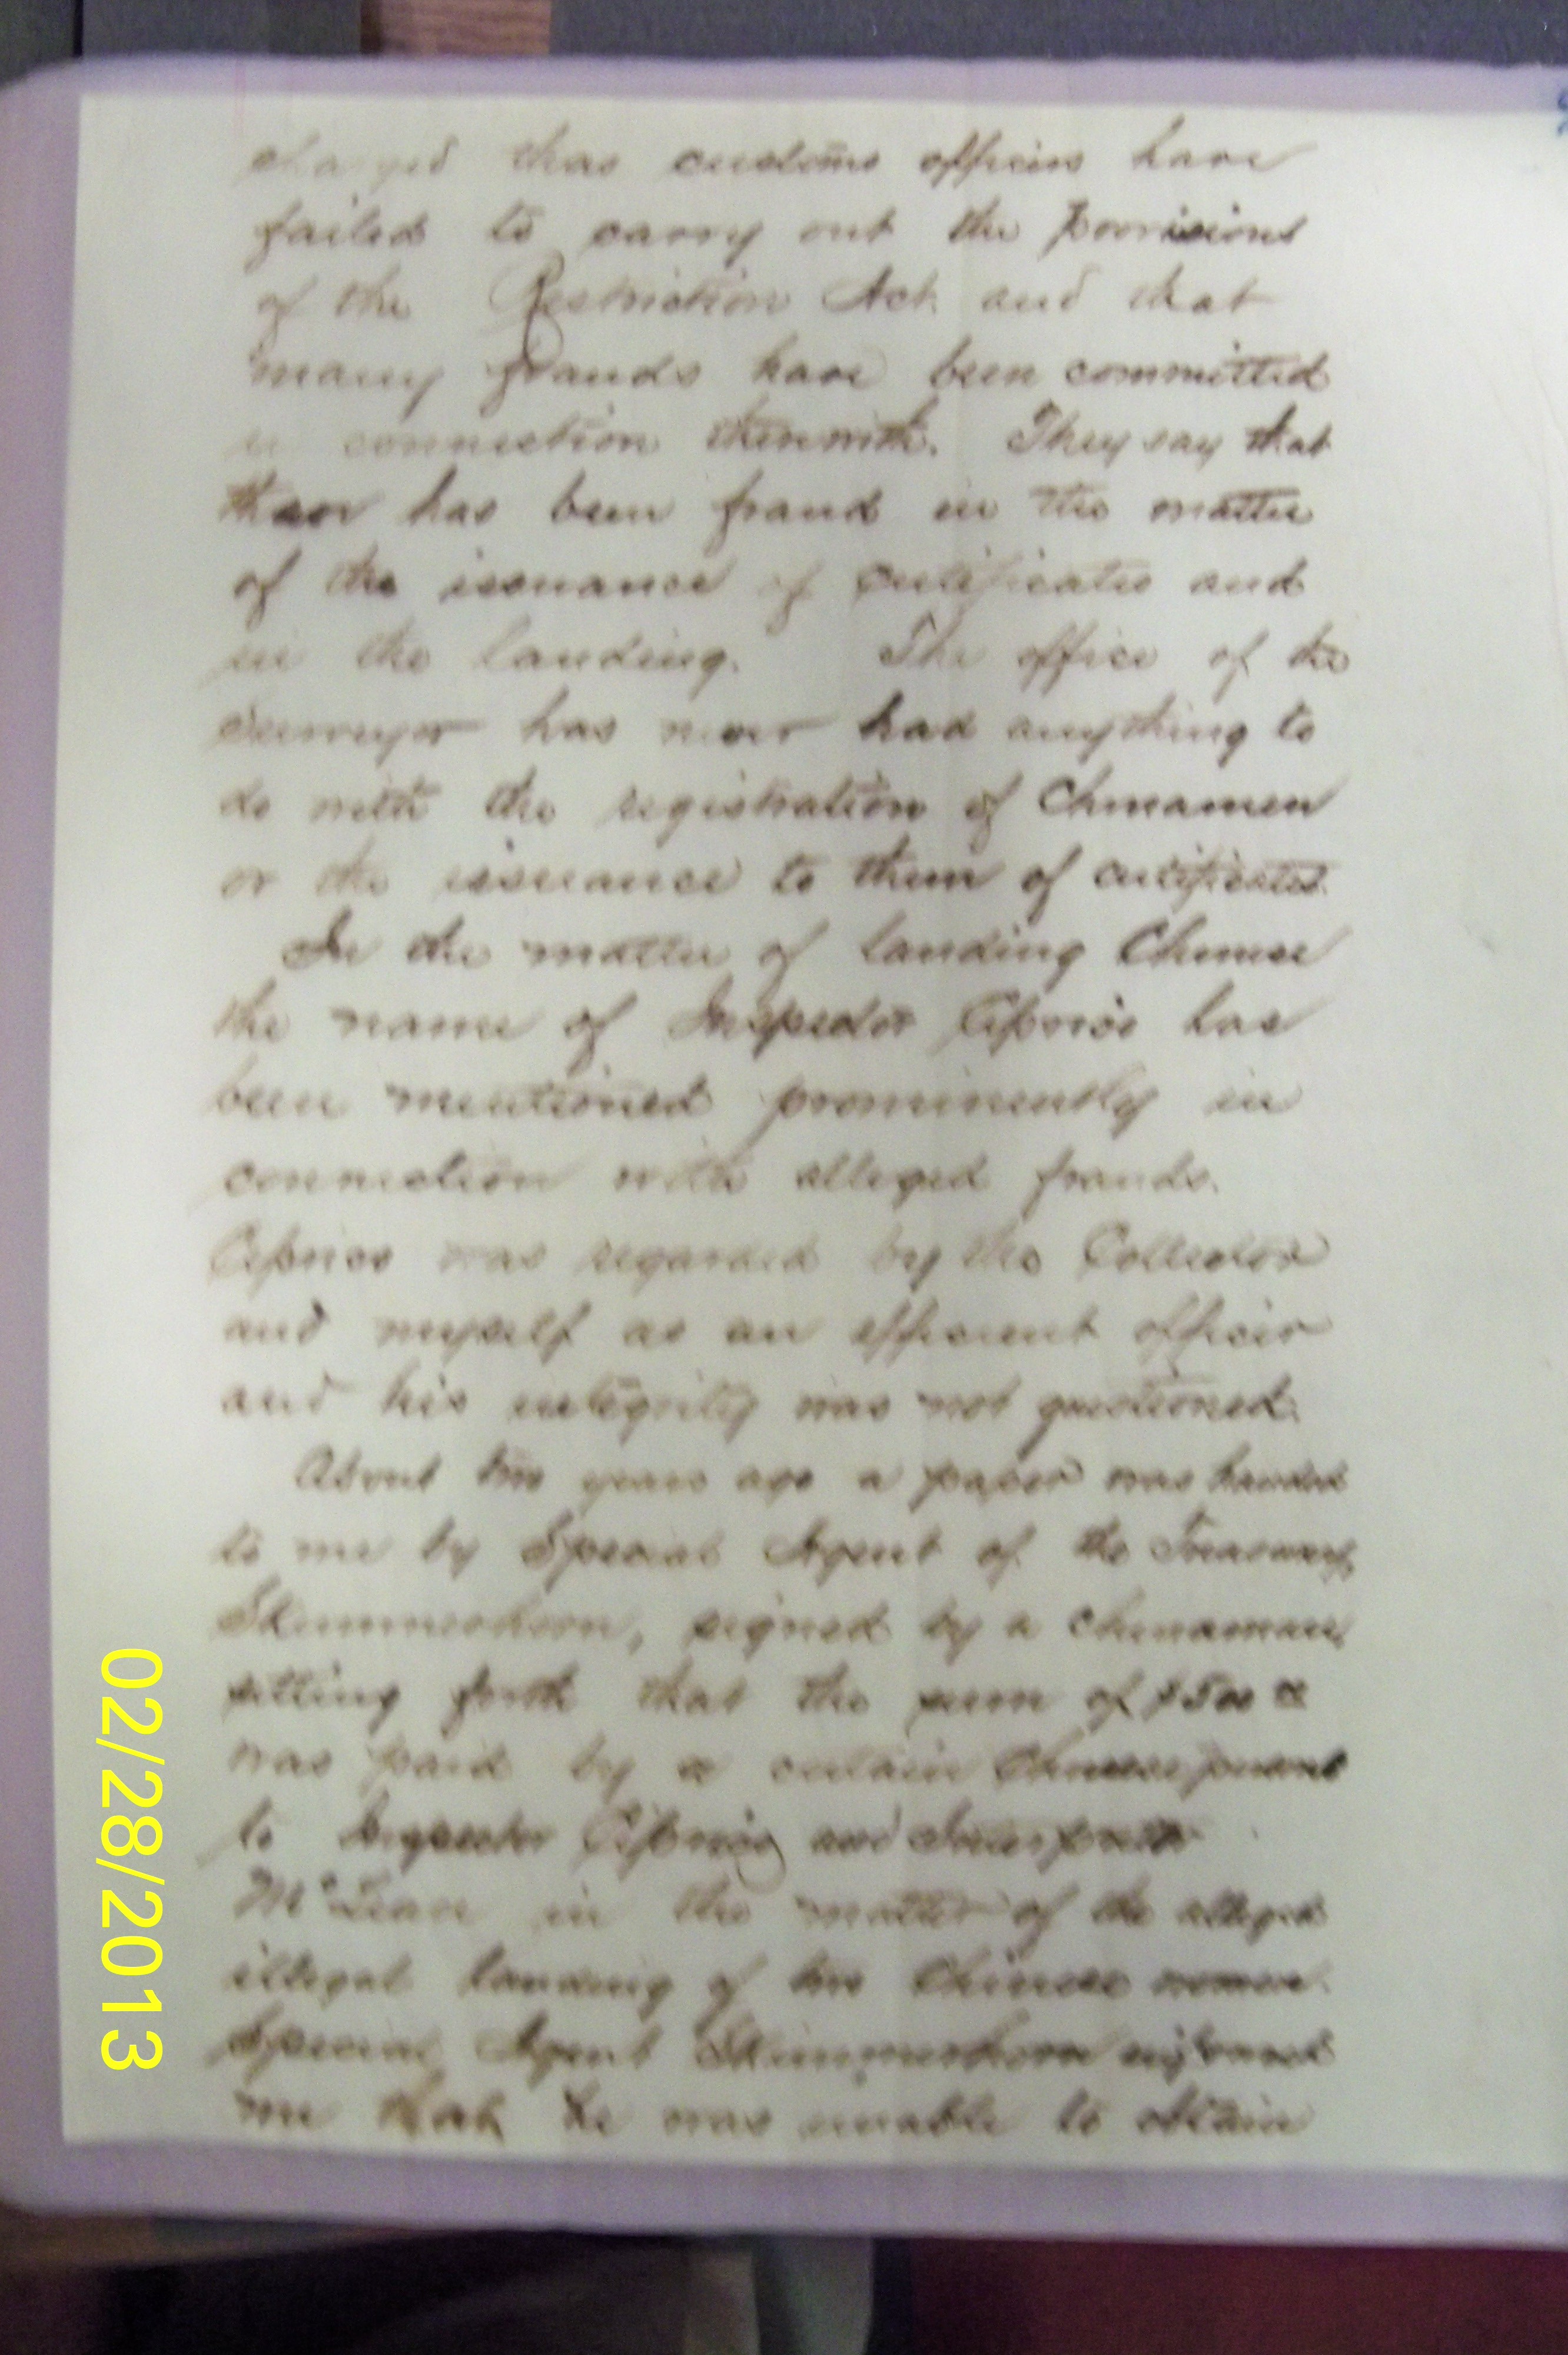 charged that customs officers have
failed to carry out the provisions
of the Restriction Act and that
many frauds have been committed
in connection therewith. They say that
there has been fraud in the matter
of the issuance of certificates and
in the landing. The office of the
Surveyor has never had anything to
do with the registration of Chinamen
or the issuance to them of certificates.
In the matter of landing Chinese
the name of Inspector Ciprico has
been mentioned prominently in
connection with alleged frauds.
Ciprico was regarded by the Collector
and myself as an efficient officer
and his integrity was not questioned.
About two years ago a paper was handed
to me by Special Agent of the Treasury,
signed by a Chinaman,
setting forth that the sum of $500
was paid by a certain Chinese
to Inspector Ciprico and Interpreter
McLean in the matter of the alleged
illegal landing of two Chinese women.
Special Agent informed
me that he was unable to obtain
02/28/2013